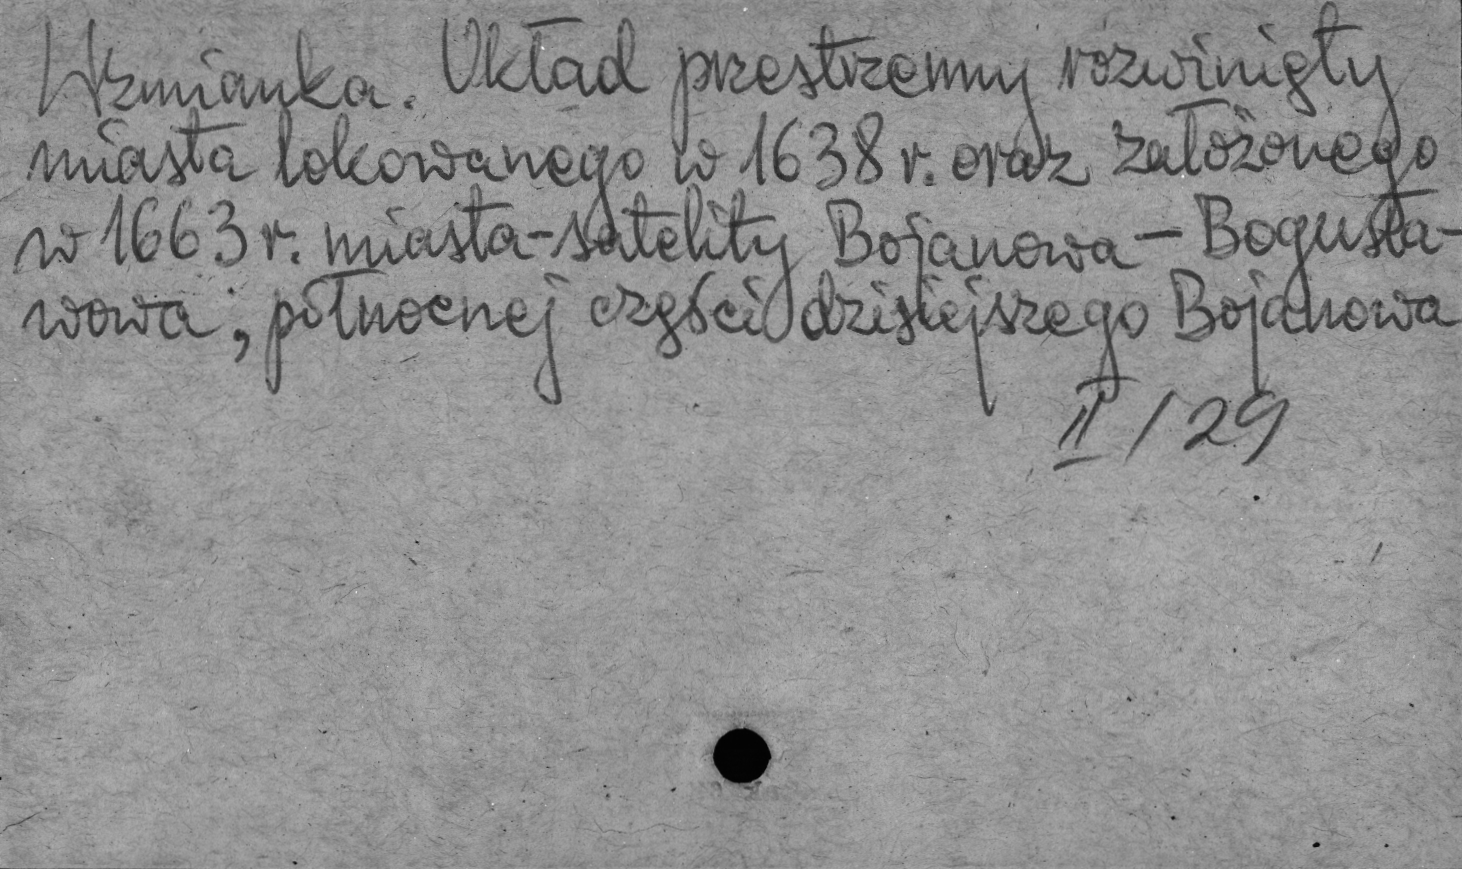 Wzmianka. Układ przestrzenny rozwinięty
miasta lokowanego w 1638 r. oraz założonego
w 1663 r. miasta-satelity Bojanowa - Bogusła-
wowa; północnej części dzisiejszego Bojanowa
II / 29